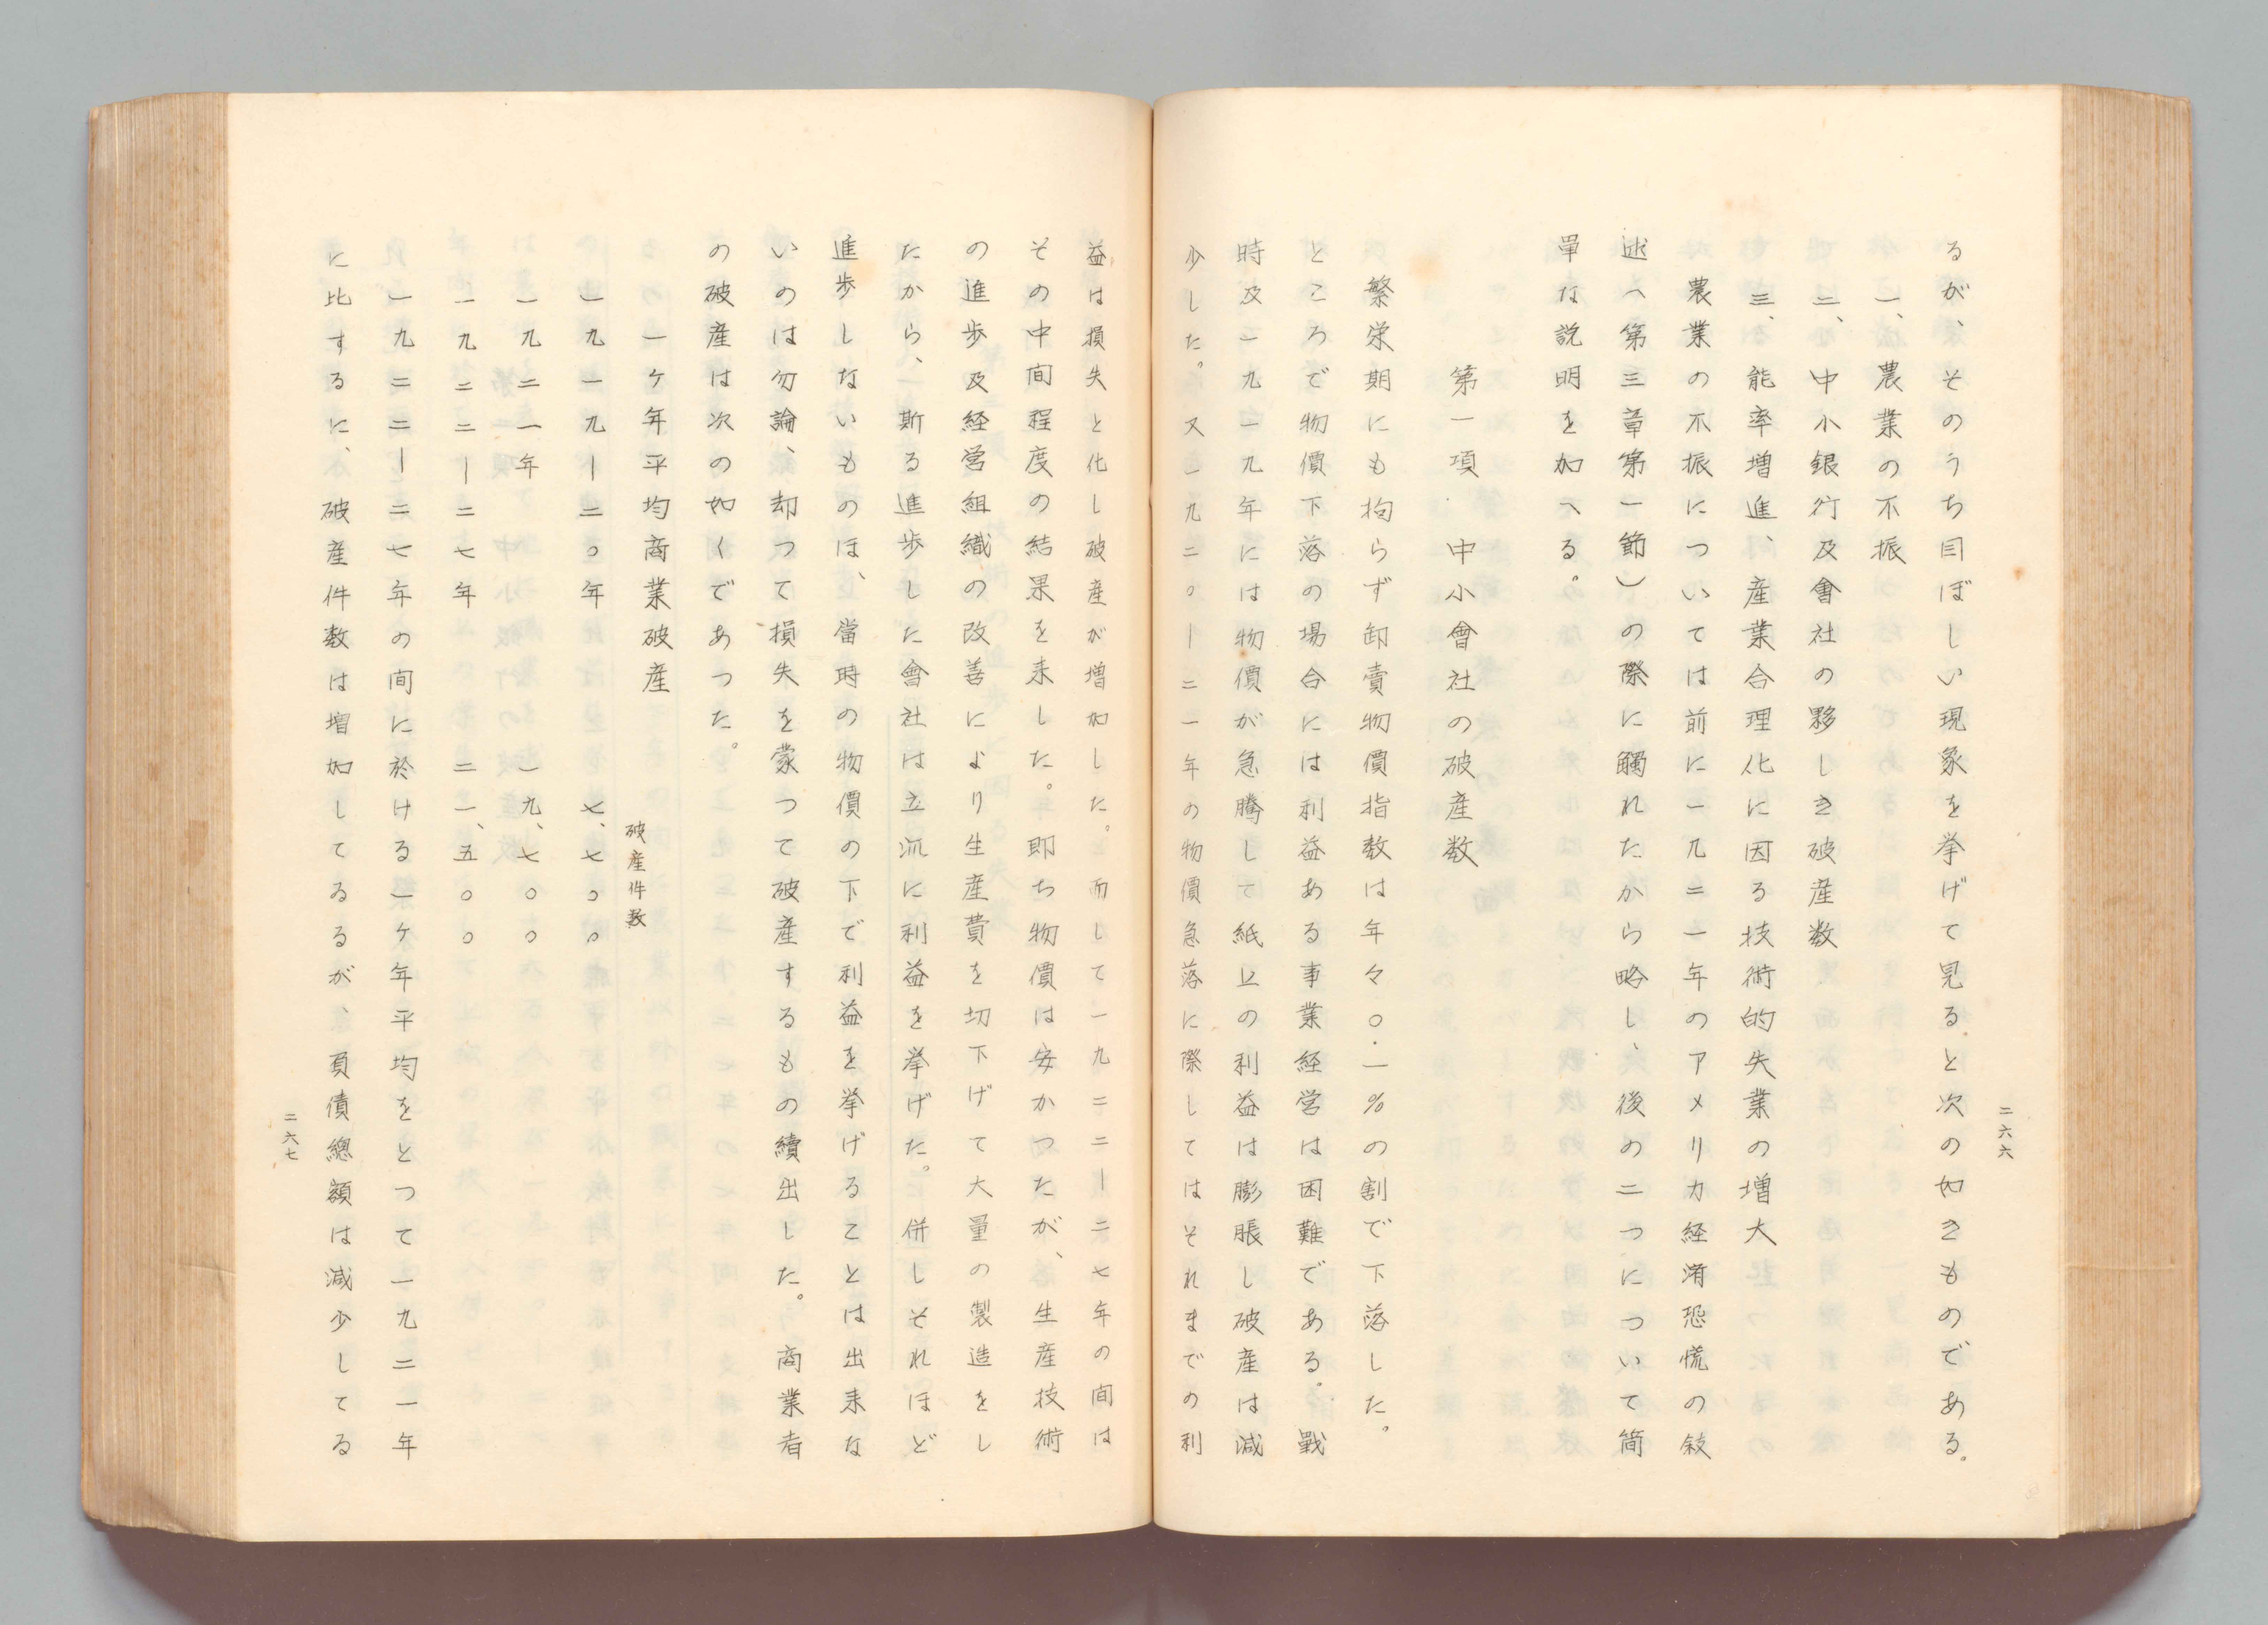 るが、そのうち目ぼしい現象を挙げて見ると次の如きものである。
一、農業の不振
二、中小銀行及會社の夥しき破産数
三、能率増進、産業合理化に因る技術的失業の増大
農業の不振については前に一九二一年のアメリカ経済恐慌の敍
述（第三章第一節）の際に觸れたから略し、後の二つについて简
單な説明を加へる。
第一項 中小會社の破産数
繁栄期にも拘らず卸賣物價指数は年々〇・一％の割で下落した。
ところで物價下落の場合には利益ある事業経営は困難である。戰
時及一九一九年には物價が急騰して紙上の利益は膨脹し破産は減
少した。又一九二〇―二一年の物價急落に際してはそれまでの利
二六六
益は損失と化し破産が増加した。而して一九二二―二七年の间は
その中间程度の結果を来した。即ち物價は安かつたが、生産技術
の進歩及経営組織の改善により生産費を切下げて大量の製造をし
たから、斯る進歩した會社は立派に利益を挙げた。併しそれほど
進歩しないものは、當時の物價の下で利益を挙げることは出来な
いのは勿論、却つて損失を蒙つて破産するもの續出した。商業者
の破産は次の如くであつた。
一ヶ年平均商業破産 破産件数
一九一九―二〇年 七、七〇〇
一九二一年 一九、七〇〇
一九二二―二七年 二一、五〇〇
一九二二―二七年の间に於ける一ヶ年平均をとつて一九二一年
に比するに、破産件数は増加してゐるが、負債總額は減少してゐる
二六七